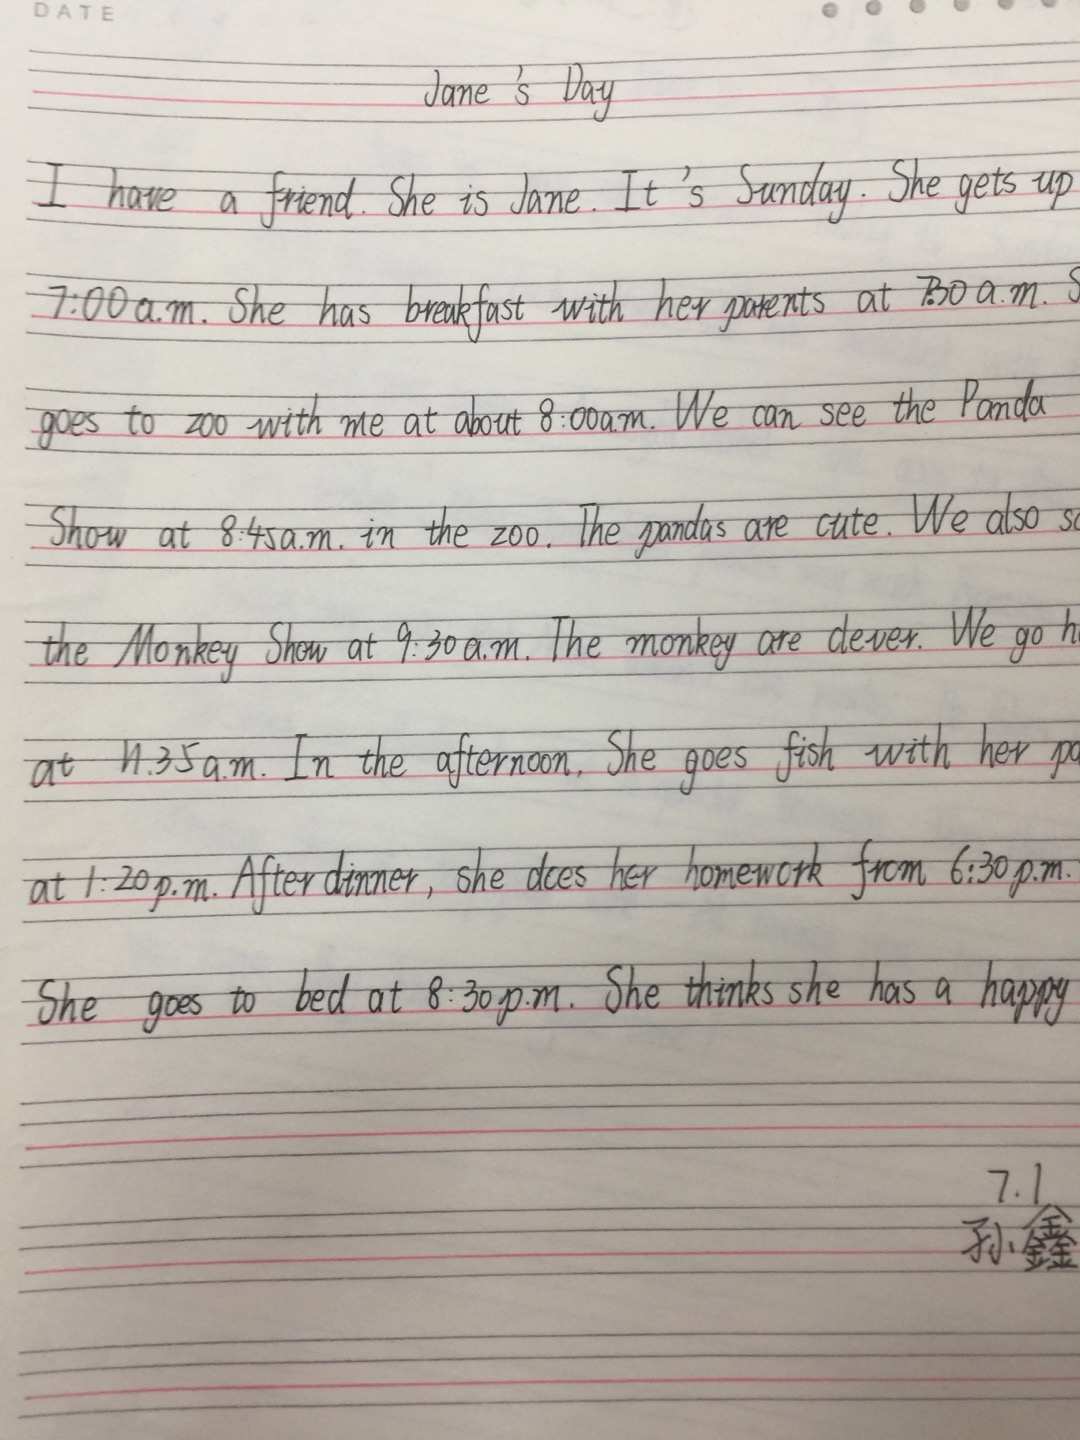 DATE
Jane's Day
I have a friend. She is Jane. It's Sunday. She gets up
7:00 a.m. She has breakfast with her parents at 7:30 a.m.
goes to zoo with me at about 8:00a.m. We can see the Panda
Show at 8:45a.m. in the zoo. The pandas are cute. We also
the Monkey Show at 9:30 a.m. The monkey are clever. We go
at 11.35 a.m. In the afternoon, She goes fish with her
at 1:20 p.m. After dinner, she does her homework from 6:30 p.m.
She goes to bed at 8:30 p.m. She thinks she has a happy
7.1
孙鑫